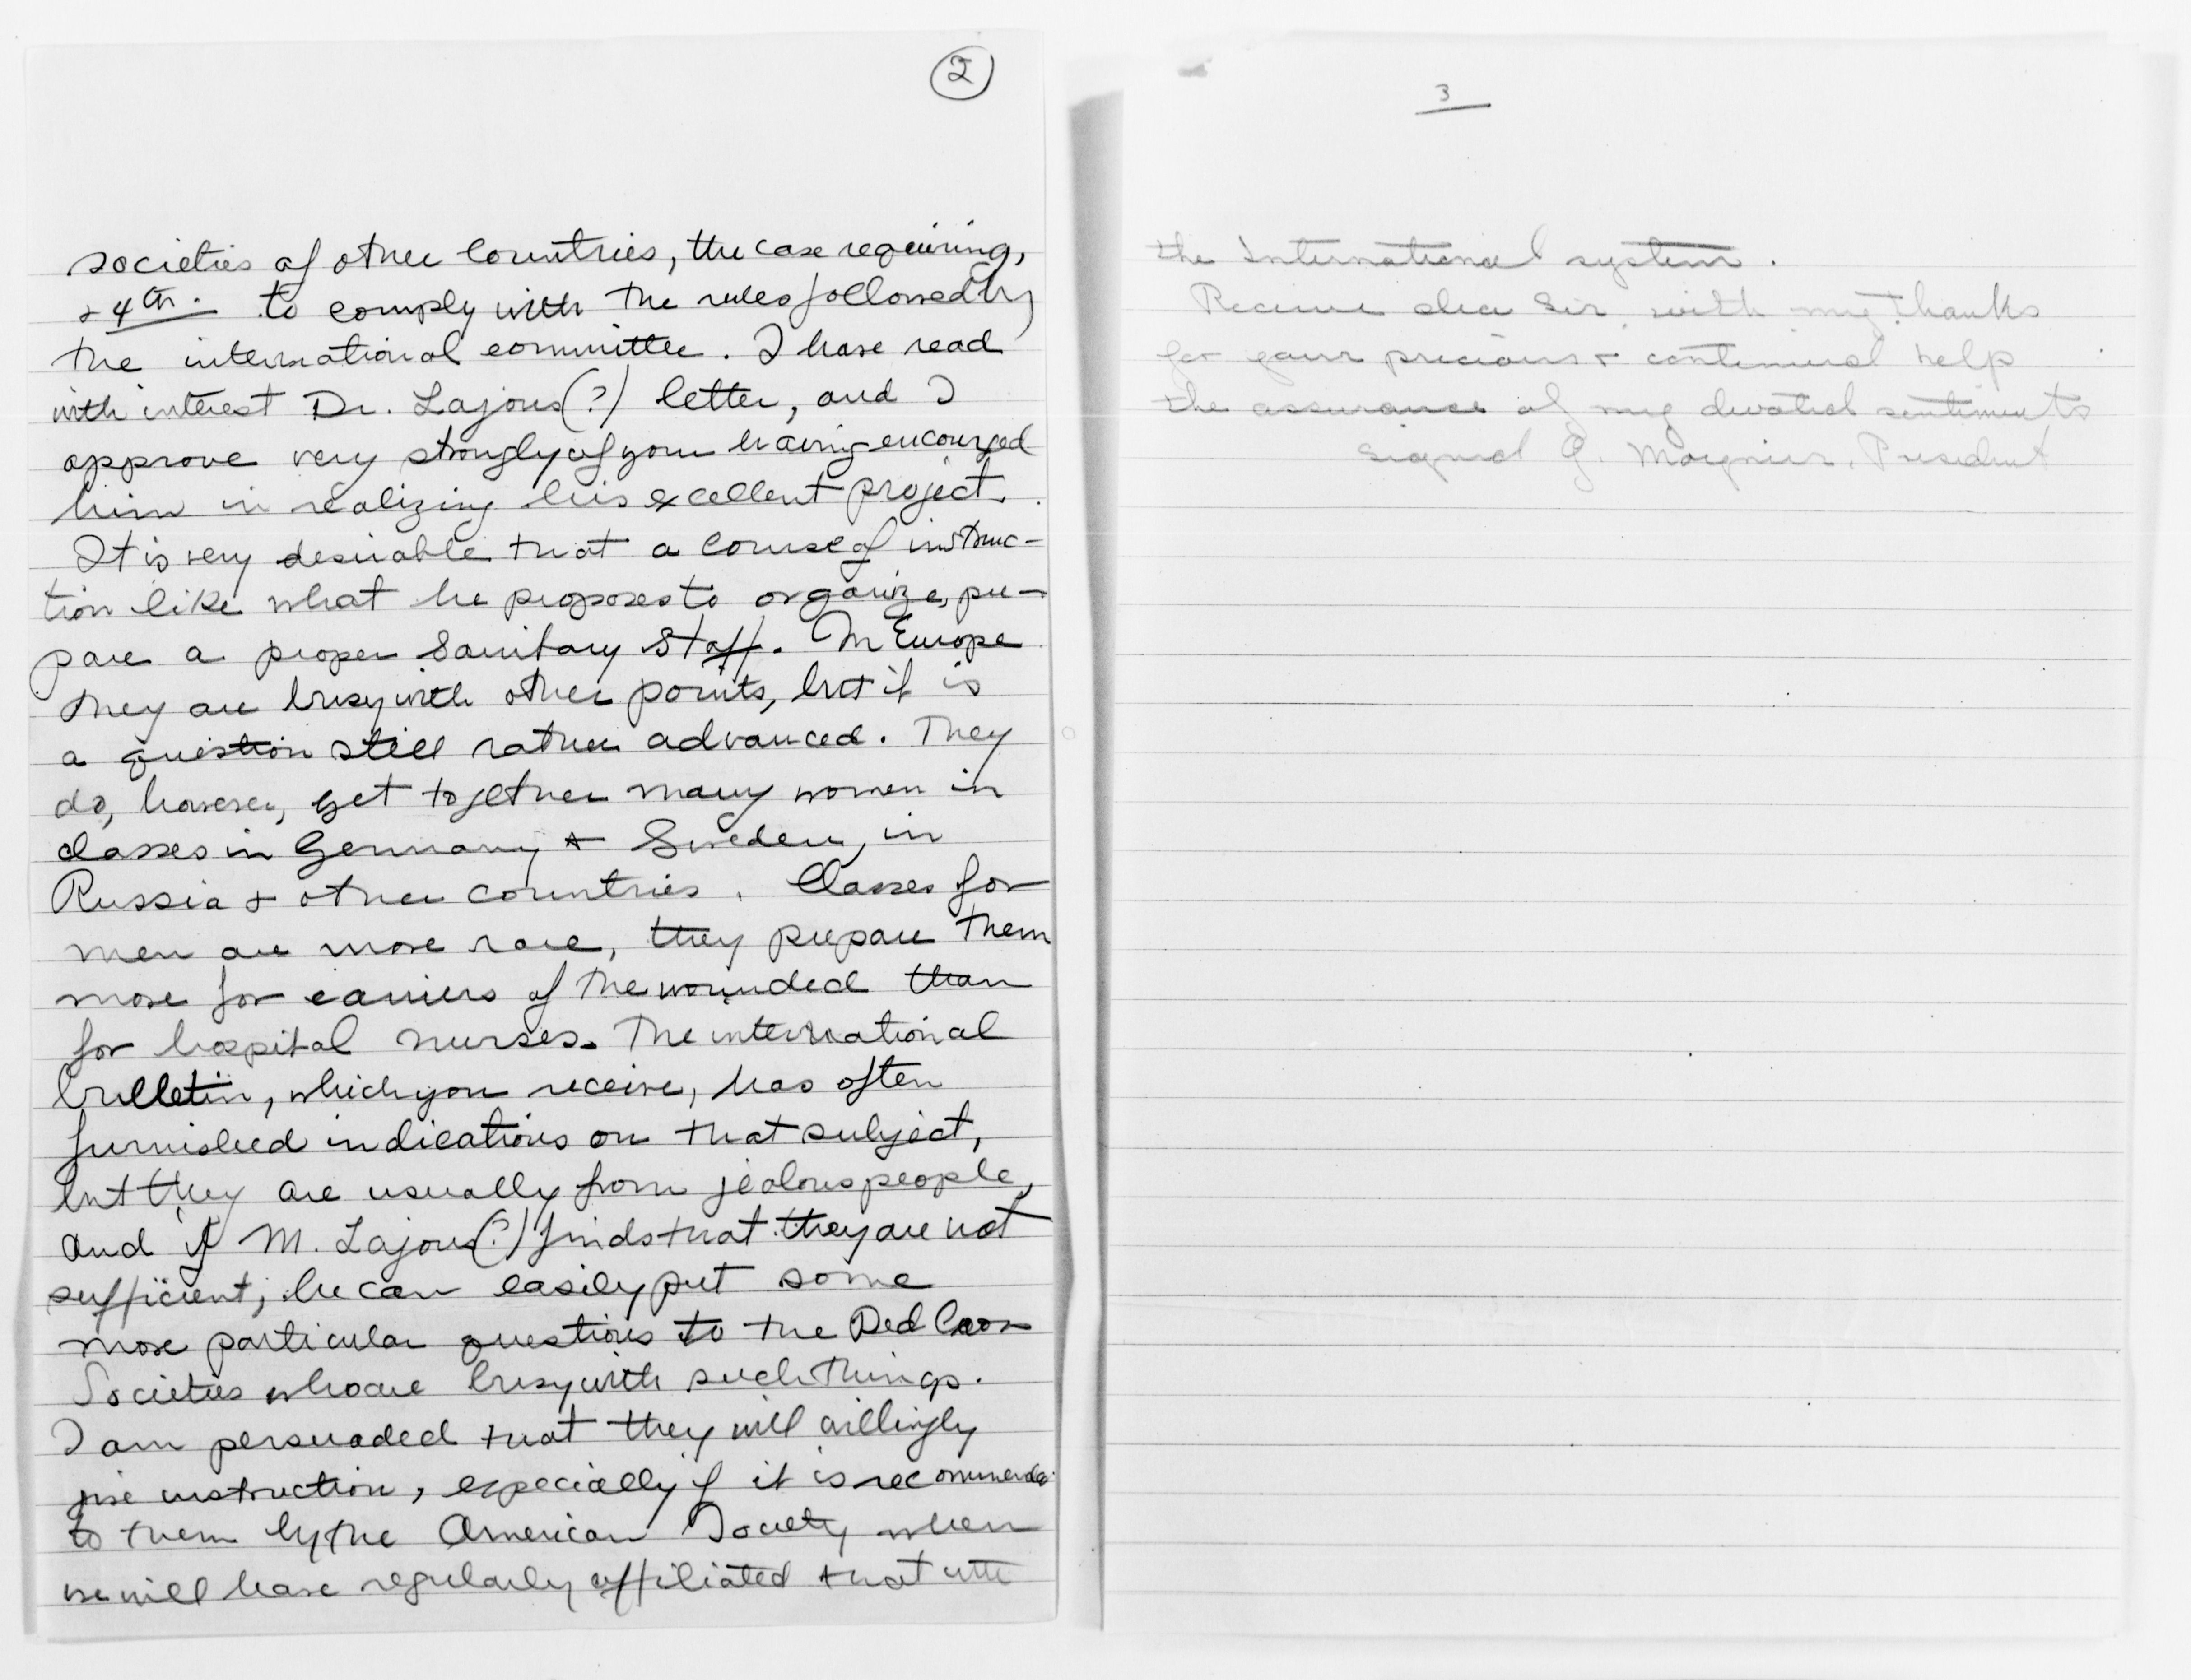 2
societies of other Countries, the case requiring,
& 4th. to comply with the rules followed by
the international committee. I have read
with interest Dr. Lajous(?) letter, and I
approve very strongly of your having encourged
him in realizing his excellent project.
It is very desirable that a course of instruc-
tion like what he proposes to organize, pre-
pare a proper Sanitary Staff. In Europe
they are busy with other points, but it is
a question still rather advanced. They
do, however, get together many women in
classes in Germany & Sweden, in
Russia & other countries. Classes for
men are more rare, they prepare them
more for carriers of the wounded than
for hospital nurses. The international
bulletin, which you receive, has often
furnished indications on that subject,
but they are usually from jealous people,
and if M. Lajous(?) finds that they are not
sufficient, he can easily put some
more particular questions to the Red Cross
Societies who are busy with such things.
I am persuaded that they will willingly
give instruction, especially if it is recommended
to them by the American Society when
we will have regularly affiliated that with
3
the International system.
Receive dear Sir, with my thanks
for your precious & continued help
the assurance of my devoted sentiments
signed G. Moynier, President